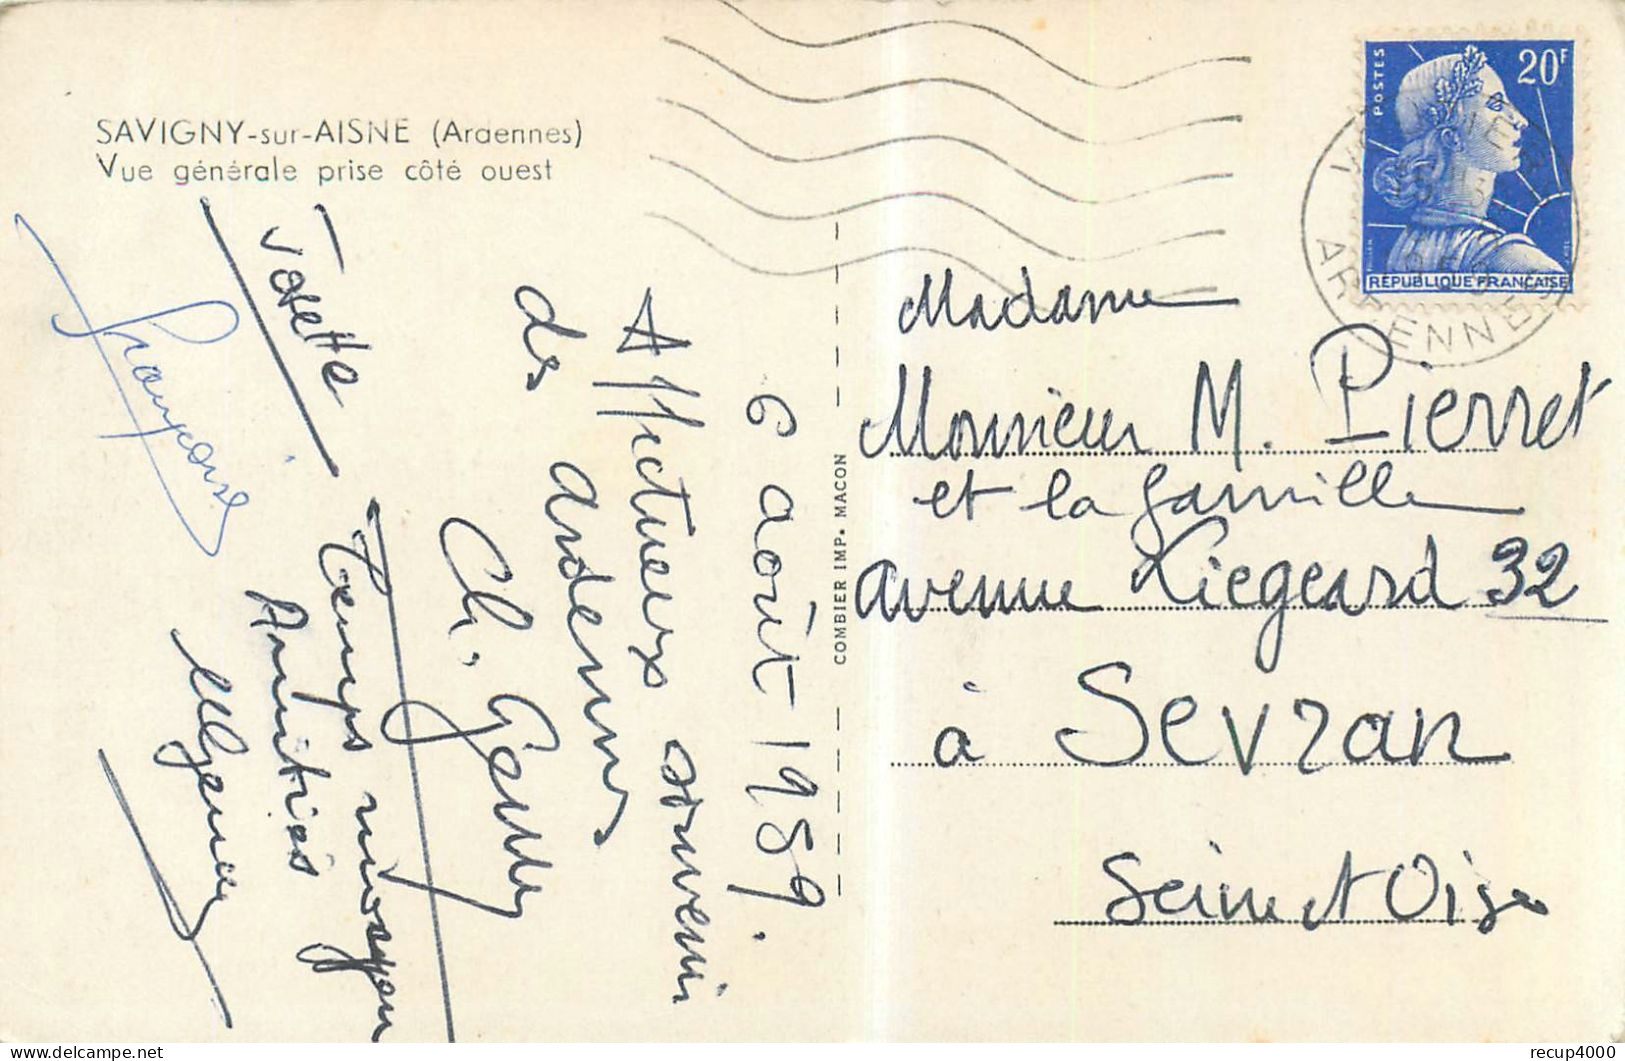 SAVIGNY-sur-AISNE (Ardennes)
Vue générale prise côté ouest
6 août 1959.
Affectueux souvenir
des Ardennes
Ch. Gény
Temps moyen
Amitiés
Josette
Françoise
COMBIER IMP. MACON
POSTES
20F
RÉPUBLIQUE FRANÇAISE
ARDENNES
Madame
Monsieur M. Pierret
et la famille
avenue Liegeard 32
à Sevran
Seine et Oise
recup4000